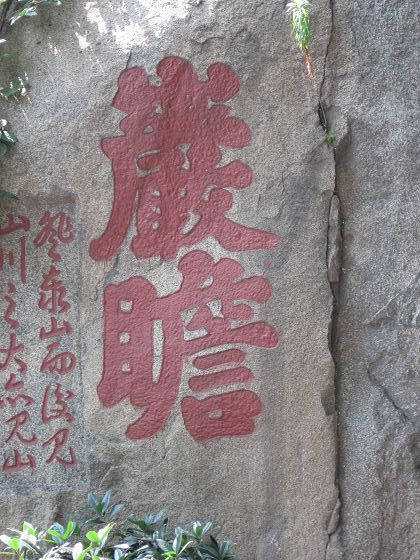 巖瞻
登泰山而後見
山川之大亦見山